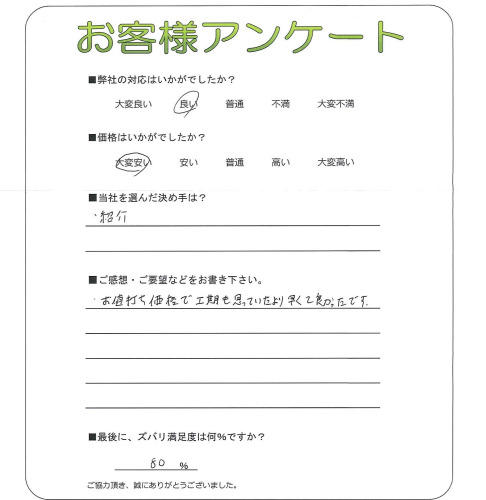 お客様アンケート
■弊社の対応はいかがでしたか？
大変良い 良い 普通 不満 大変不満
■価格はいかがでしたか？
大変安い 安い 普通 高い 大変高い
■当社を選んだ決め手は？
・紹介
■ご感想・ご要望などをお書き下さい。
・お値打ち価格で工期も思っていたより早くて良かったです。
■最後に、ズバリ満足度は何%ですか？
80 %
ご協力頂き、誠にありがとうございました。